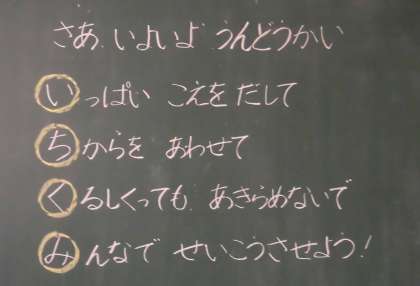 さあ、いよいよ うんどうかい
いっぱい こえを だして
ちからを あわせて
くるしくっても、あきらめないで
みんなで せいこうさせよう!